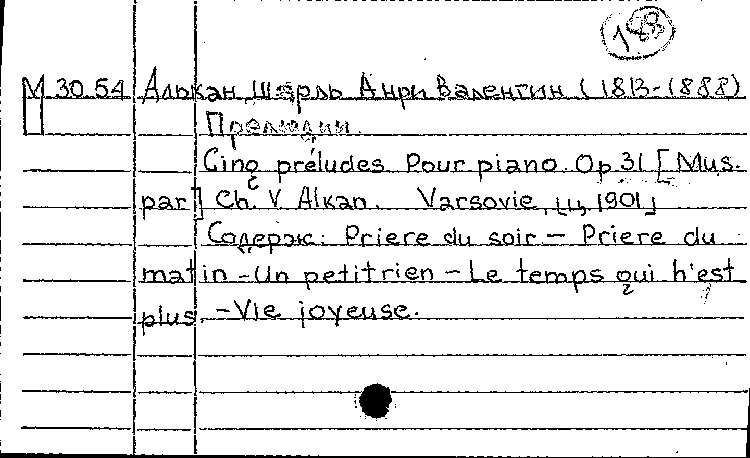 188
М 30.54 Алькан, Шарль Анри Валентин (1813-1888)
Прелюдии.
Cinq préludes. Pour piano. Op 31 [Mus.
par] Ch. V. Alkan. Varsovie, [ц, 1901]
Содерж: Priere du soir – Priere du
matin – Un petit rien – Le temps qui n'est
plus. – Vie joyeuse.